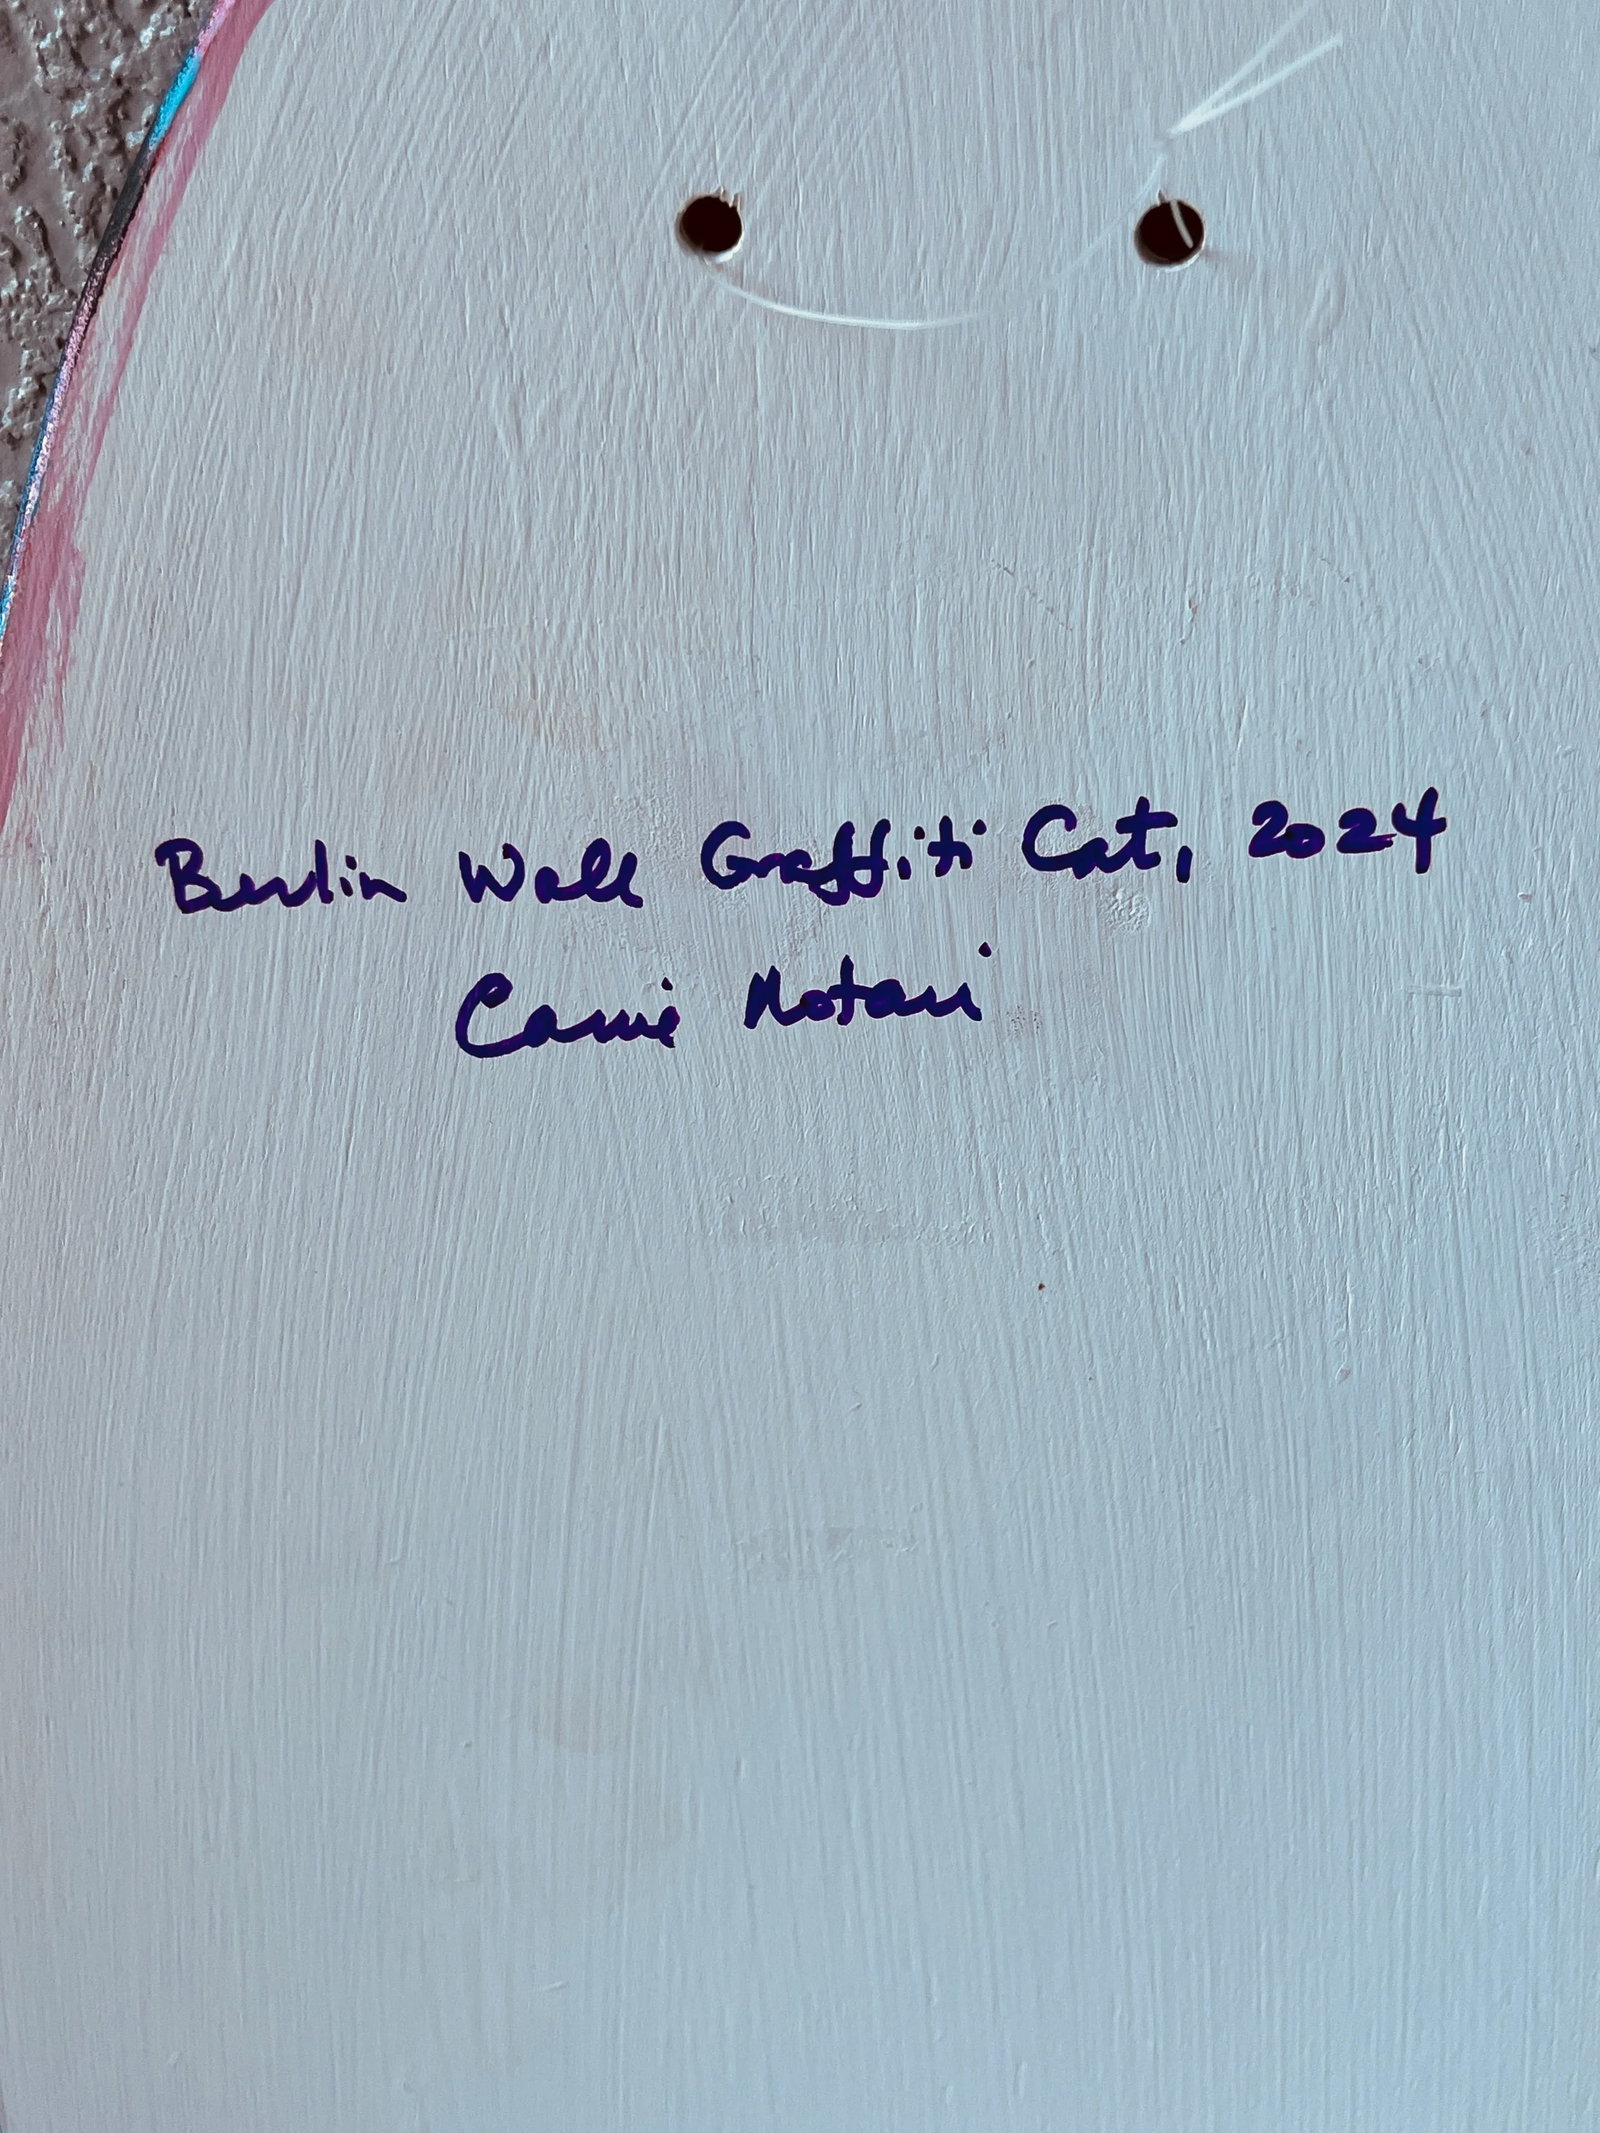 Berlin Wall Graffiti Cat, 2024
Carrie Notari